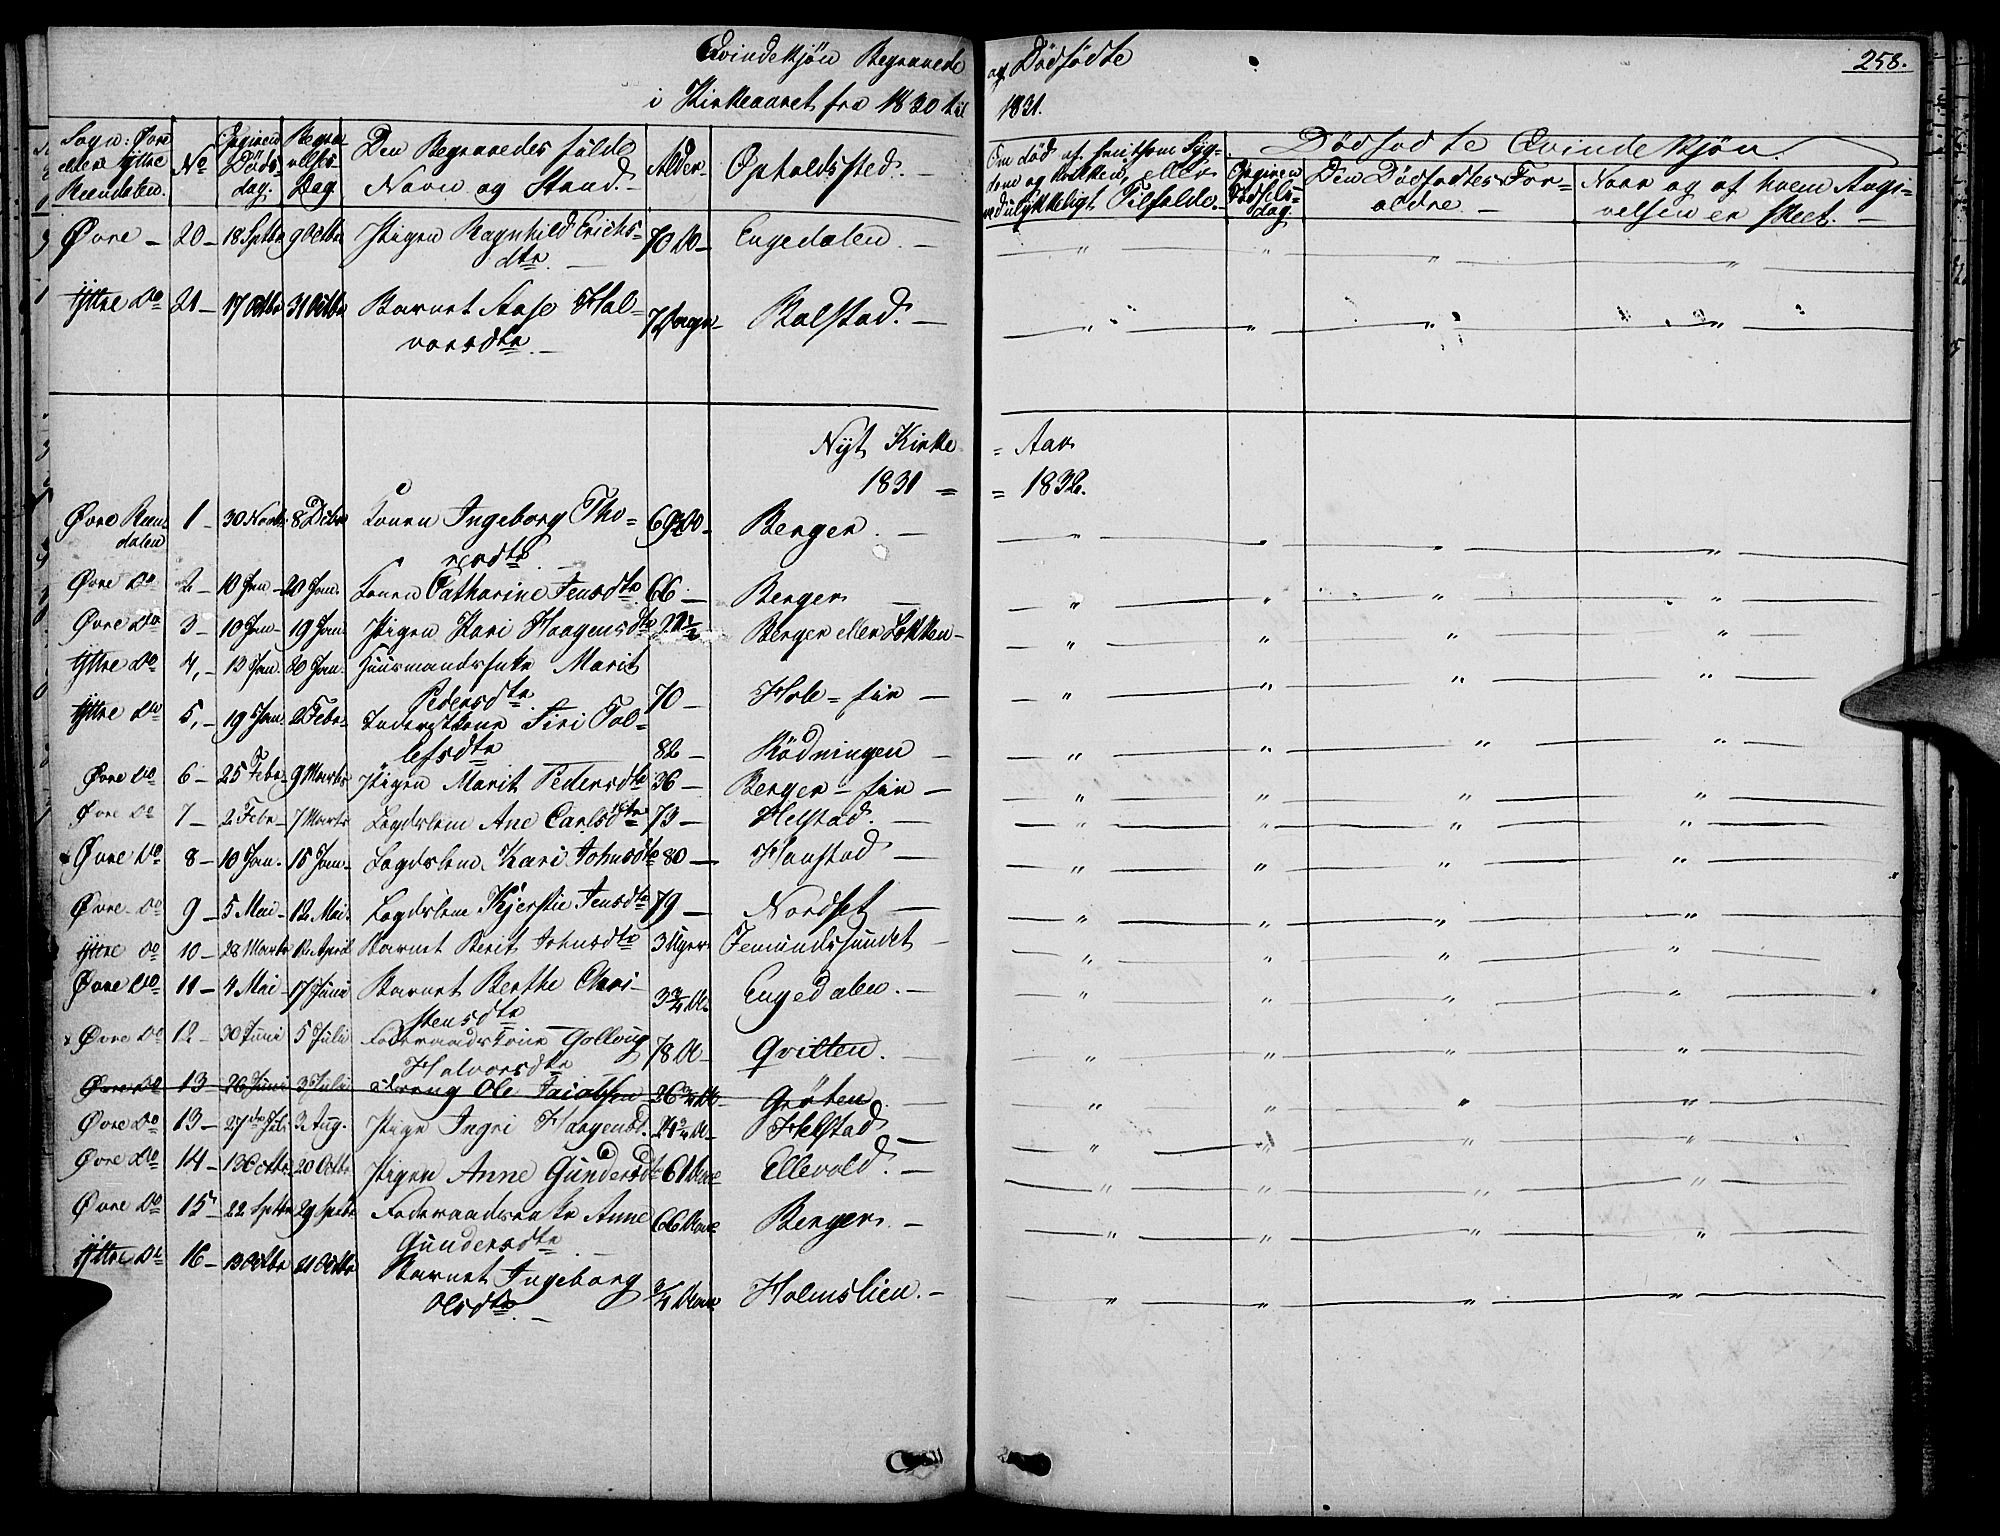 Qvindekjön Begravede og Dödfödte 258.
i Kirkeaaret fra 1830 til 1831.
Sogn: Øvre eller Yttre Rendalen. No Opgiven Döds-dag. Begravelses Dag Den Begravedes fulde Navn og Stand. Alder Opholdssted. Om död af hvilken Syg-dom og hvilken, eller ved ulykkeligt Tilfælde. Dödfödte Qvindekjön.
Opgiven Födsels-dag. Den Dödfödtes For-ældre. Naar og af hvem Angi-velsen er skeet.
Øvre - 20 - 18 Septbr 9 Octbr Pigen Ragnhild Erichs-dtr. 70 Ao - Engedalen. -
Yttre Do 21 - 17 Octbr 31 Octbr Barnet Aase Hal-vorsdtr. 7 Dage - Bolstad. -
Nyt Kirke = Aar
1831 = = 1832.
Øvre Ren-dalen 1 - 30 Novbr 8 Decbr Konen Ingeborg Tho-resdtr Berger. -
Øvre Do 2 - 10 Jan - 20 Jan. Konen Catharine Jensdtr 66 - Berger -
Øvre Do 3 - 10 Jan - 19 Jan. Pigen Kari Haagensdtr Berger eller Løkken -
Yttre Do 4, - 13 Jan. 20 Jan. Huusmandsenke Marit Pedersdtr 70 - Hole = eie -
Yttre Do 5, - 19 Jan. 2 Febr. Siri Tol-lefsdtr 82 - Rödningen -
Øvre Do 6 - 25 Febr. 9 Marts Pigen Marit Pedersdtr 36 - Berger = eie -
Øvre Do 7 - 2 Febr - 7 Marts Lægdslem Ane Carlsdtr 73 - Helstad. -
Øvre Do 8 - 10 Jan. 15 Jan. Lægdslem Kari Johnsdtr 80 - Hanstad -
Øvre Do 9 - 5 Mai - 12 Mai. Lægdslem Kjerstie Jensdtr 79 - Nordset -
Yttre Do 10 - 28 Marts 12 April Barnet Berit Johnsdtr 3 Uger Femundssundet -
Øvre Do 11 - 4 Mai - 17 Juni Barnet Berthe Chri-stensdtr 3 3/4 Ao. Engedalen. -
Øvre Do 12 - 30 Juni 5 Julii Föderaadskone Gollaug Halvorsdtr 78 Ao - Qvilten. -
Øvre Do 13 - 26 Juni 3 Julii Dreng Ole Jacobsen 26 3/4 Ao Grøten -
Øvre Do 13 - 27de Juli 3 Aug. Pige Ingri Haagensd. 24 3/4 Ao - Helstad -
Øvre Do 14 - 13 Octbr 20 Octbr Pigen Anne Gundersdtr 61 Aar Ellevold. -
Øvre Do 15 - 22 Septbr 29 Septbr Föderaadsenke Anne Gundersdtr 66 Aar Berger. -
Yttre Do 16 - 13 Octbr 21 Octbr Barnet Ingeborg Olsdtr. 3/4 Aar Holmslien. -